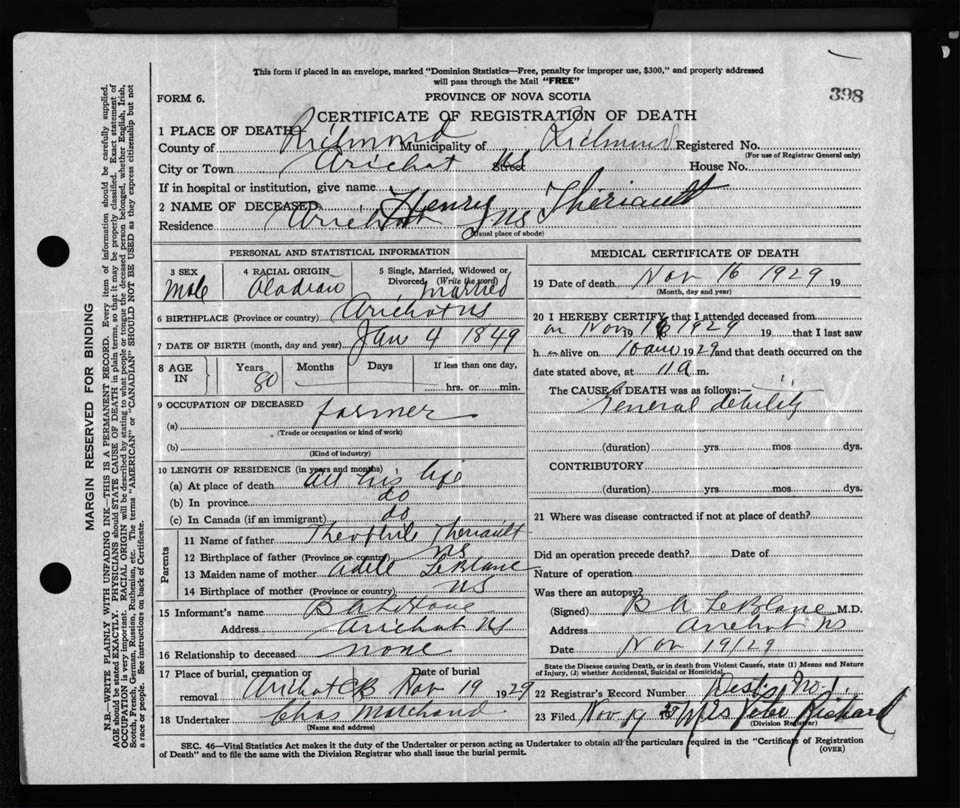 This form if placed in an envelope, marked "Dominion Statistics—Free, penalty for improper use, $300," and properly addressed
will pass through the Mail "FREE"
398
FORM 6.
PROVINCE OF NOVA SCOTIA
CERTIFICATE OF REGISTRATION OF DEATH
1 PLACE OF DEATH
County of Richmond Municipality of Richmond Registered No.
(For use of Registrar General only)
City or Town Arichat Street NS House No.
If in hospital or institution, give name
2 NAME OF DECEASED Henry Thériault
Residence Arichat NS
(Usual place of abode)
PERSONAL AND STATISTICAL INFORMATION
3 SEX Male
4 RACIAL ORIGIN
5 Single, Married, Widowed or Divorced (Write the word) married
6 BIRTHPLACE (Province or country) Arichat NS
7 DATE OF BIRTH (month, day and year) Jan 4 1849
8 AGE IN Years 80 Months Days If less than one day, hrs. or min.
9 OCCUPATION OF DECEASED
(a) farmer
(Trade or occupation or kind of work)
(b)
(Kind of industry)
10 LENGTH OF RESIDENCE (in years and months)
(a) At place of death all his life
(b) In province do
(c) In Canada (if an immigrant) do
Parents
11 Name of father Theophile Theriault
12 Birthplace of father (Province or country) NS
13 Maiden name of mother Adell LeBlanc
14 Birthplace of mother (Province or country) NS
15 Informant's name B A
Address Arichat NS
16 Relationship to deceased none
17 Place of burial, cremation or removal Arichat CB Date of burial Nov 19 1929
18 Undertaker Chas Marchand
(Name and address)
MEDICAL CERTIFICATE OF DEATH
19 Date of death Nov 16 1929 19
(Month, day and year)
20 I HEREBY CERTIFY that I attended deceased from
on Nov 19 16 1929 19 that I last saw
h alive on 10 am 1929 and that death occurred on the
date stated above, at 11 a m.
The CAUSE of DEATH was as follows:
General debility
(duration) yrs. mos. dys.
CONTRIBUTORY
(duration) yrs. mos. dys.
21 Where was disease contracted if not at place of death?
Did an operation precede death? Date of
Nature of operation
Was there an autopsy?
(Signed) B A LeBlanc M.D.
Address Arichat NS
Date Nov 19/29
State the Disease causing Death, or in death from Violent Causes, state (1) Means and Nature
of Injury, (2) whether Accidental, Suicidal or Homicidal.
22 Registrar's Record Number
23 Filed Nov 19 Mrs Richard
(Division Registrar)
SEC. 46—Vital Statistics Act makes it the duty of the Undertaker or person acting as Undertaker to obtain all the particulars required in the "Certificate of Registration
of Death" and to file the same with the Division Registrar who shall issue the burial permit.
(OVER)
MARGIN RESERVED FOR BINDING
N.B.—WRITE PLAINLY WITH UNFADING INK—THIS IS A PERMANENT RECORD. Every item of information should be carefully supplied.
AGE should be stated EXACTLY. PHYSICIANS should STATE CAUSE OF DEATH in plain terms, so that it may be properly classified. Exact statement of
OCCUPATION is very important. RACIAL ORIGIN will be described by stating to what people or tongue the deceased person belonged, whether English, Irish,
Scotch, French, German, Russian, Ruthenian, etc. The terms "AMERICAN" or "CANADIAN" SHOULD NOT BE USED as they express citizenship but not
a race or people. See instructions on back of Certificate.